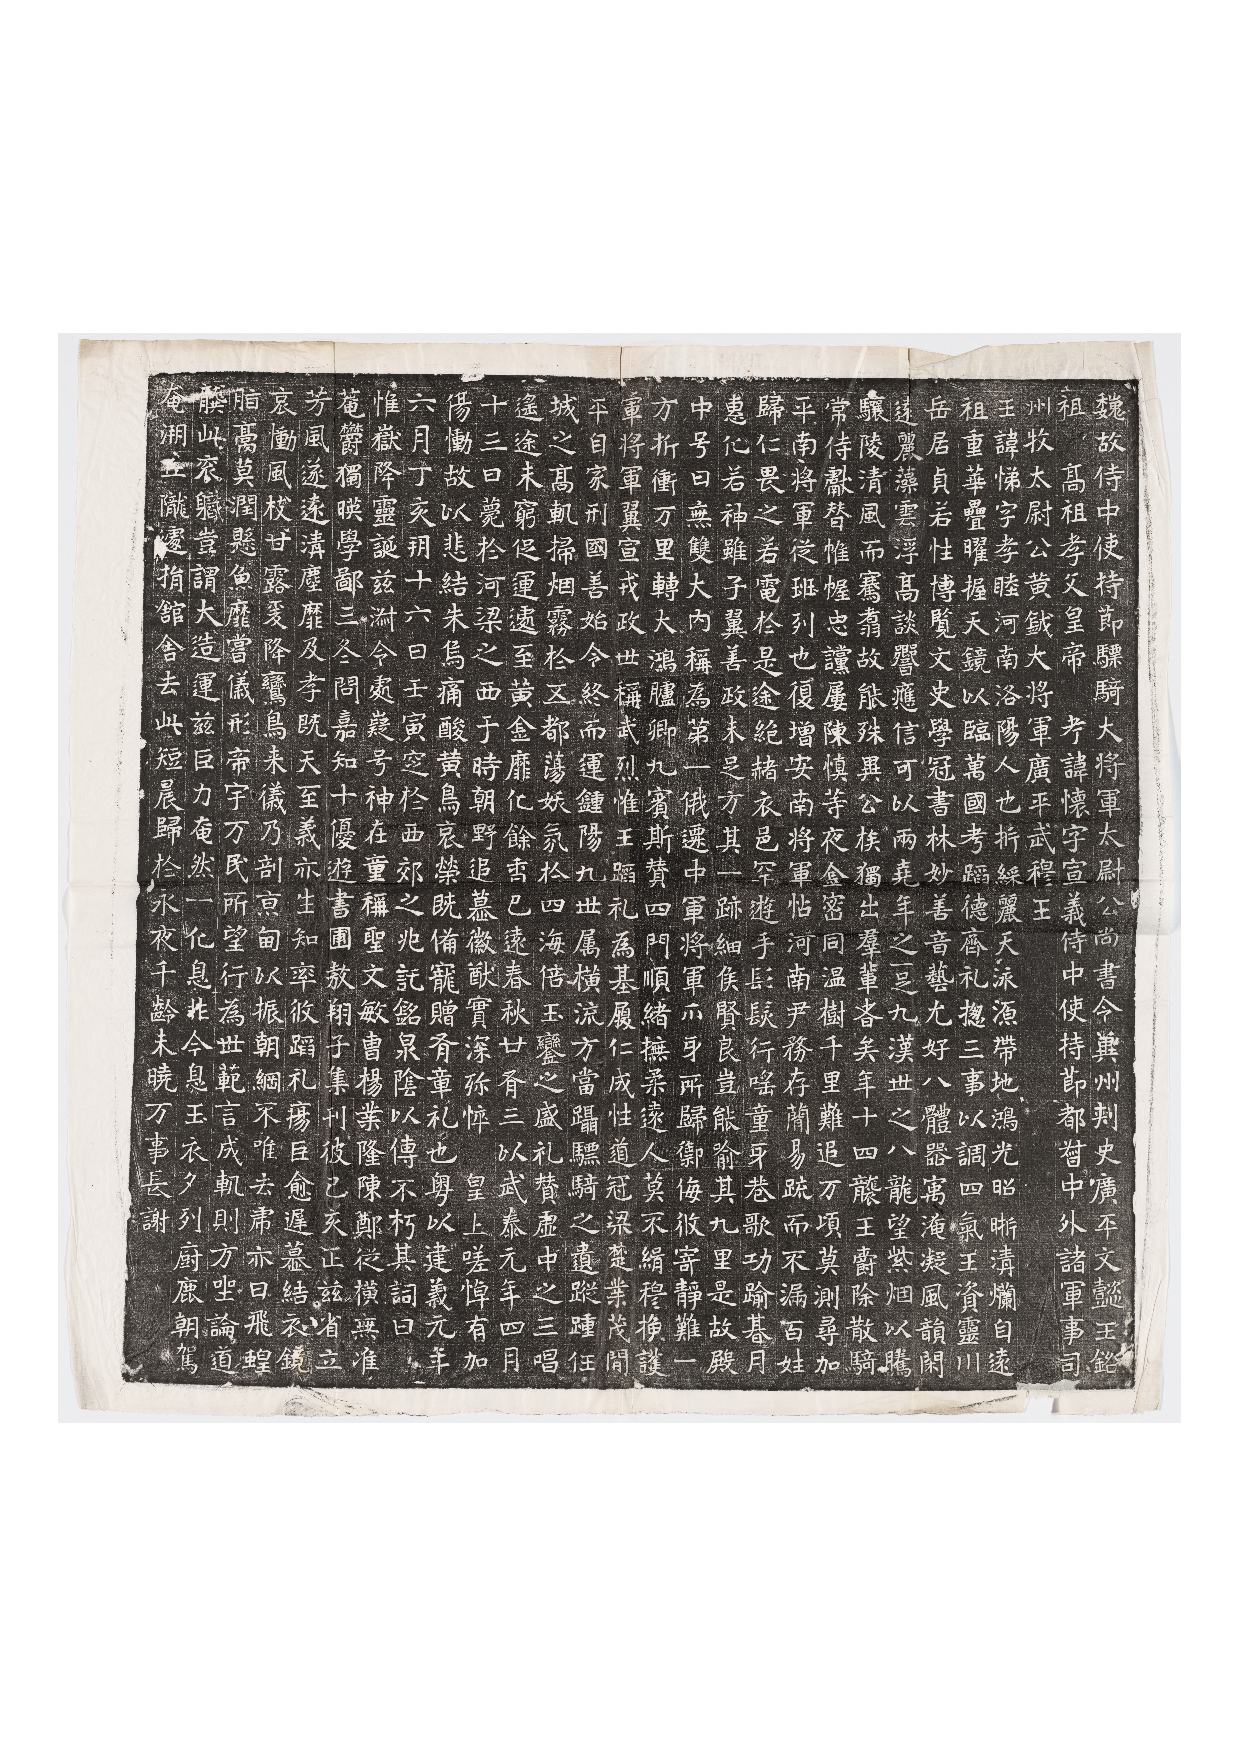 魏故侍中使持節驃騎大將軍太尉公尚書令冀州刺史廣平文懿王銘
祖 高祖孝文皇帝 考諱懷字宣義侍中使持節都督中外諸軍事司
州牧太尉公黃鉞大將軍廣平武穆王
王諱悌字孝睦河南洛陽人也析綵麗天泳源帶地鴻光昭晰清爛自遠
祖重華疊曜握天鏡以臨萬國考蹈德齊礼揔三事以調四氣王資靈川
岳居貞若性博覽文史學冠書林妙善音藝尤好八體器寓淹凝風韻閑
遠麗藻雲浮高談響應信可以兩堯年之二足九漢世之八龍望紫烟以騰
驤陵清風而騫翥故能殊異公侯獨出羣輩者矣年十四襲王爵除散騎
常侍獻替帷幄忠讜屢陳慎等夜金密同溫樹千里難追万頃莫測尋加
平南將軍從班列也復增安南將軍帖河南尹務存蕳易疏而不漏百姓
歸仁畏之若電於是途絕赭衣邑罕遊手髟髮行謠童牙巷歌功踰朞月
惠化若神雖子翼善政未足方其一跡細侯賢良豈能喻其九里是故殿
中号曰無雙大內稱為第一俄遷中軍將軍爪牙所歸禦侮攸寄靜難一
方折衝万里轉大鴻臚卿九賓斯贊四門順緒撫柔遠人莫不緝穆換護
軍將軍翼宣戎政世稱武烈惟王蹈礼為基履仁成性道冠梁楚業茂閒
平自家刑國善始令終而運鍾陽九世属橫流方當躡驃騎之遺蹤踵任
城之高軌掃烟霧於五都蕩妖氛於四海倍玉鑾之盛礼贊虛中之三唱
遙途未窮促運遽至黃金靡化餘香已遠春秋廿有三以武泰元年四月
十三日薨於河梁之西于時朝野追慕徽猷實深弥悴 皇上嗟悼有加
傷慟故以悲結朱鳥痛酸黃鳥哀榮既備寵贈有章礼也粵以建義元年
六月丁亥朔十六日壬寅窆於西郊之兆託銘泉陰以傳不朽其詞曰
惟嶽降靈誕茲淵令處嶷号神在童稱聖文敏曹楊業隆陳鄭從橫無准
菴鬱獨暎學鄙三冬問嘉知十優遊書圃敖翔子集刊彼己亥正茲省立
芳風遂遠清塵靡及孝既天至義亦生知率攸蹈礼瘍巨愈遲慕結衣鏡
哀慟風枝甘露爰降鸞鳥来儀乃剖京甸以振朝綱不唯去肅亦曰飛蝗
脂鬲莫潤懸魚靡嘗儀形帝宇万民所望行為世範言成軌則方毗論道
龔此衮職豈謂大造運茲巨力奄然一化息非今息玉衣夕列廚鹿朝駕
奄湘丘隴遽捐館舍去此短晨歸於永夜千齡未曉万事長謝